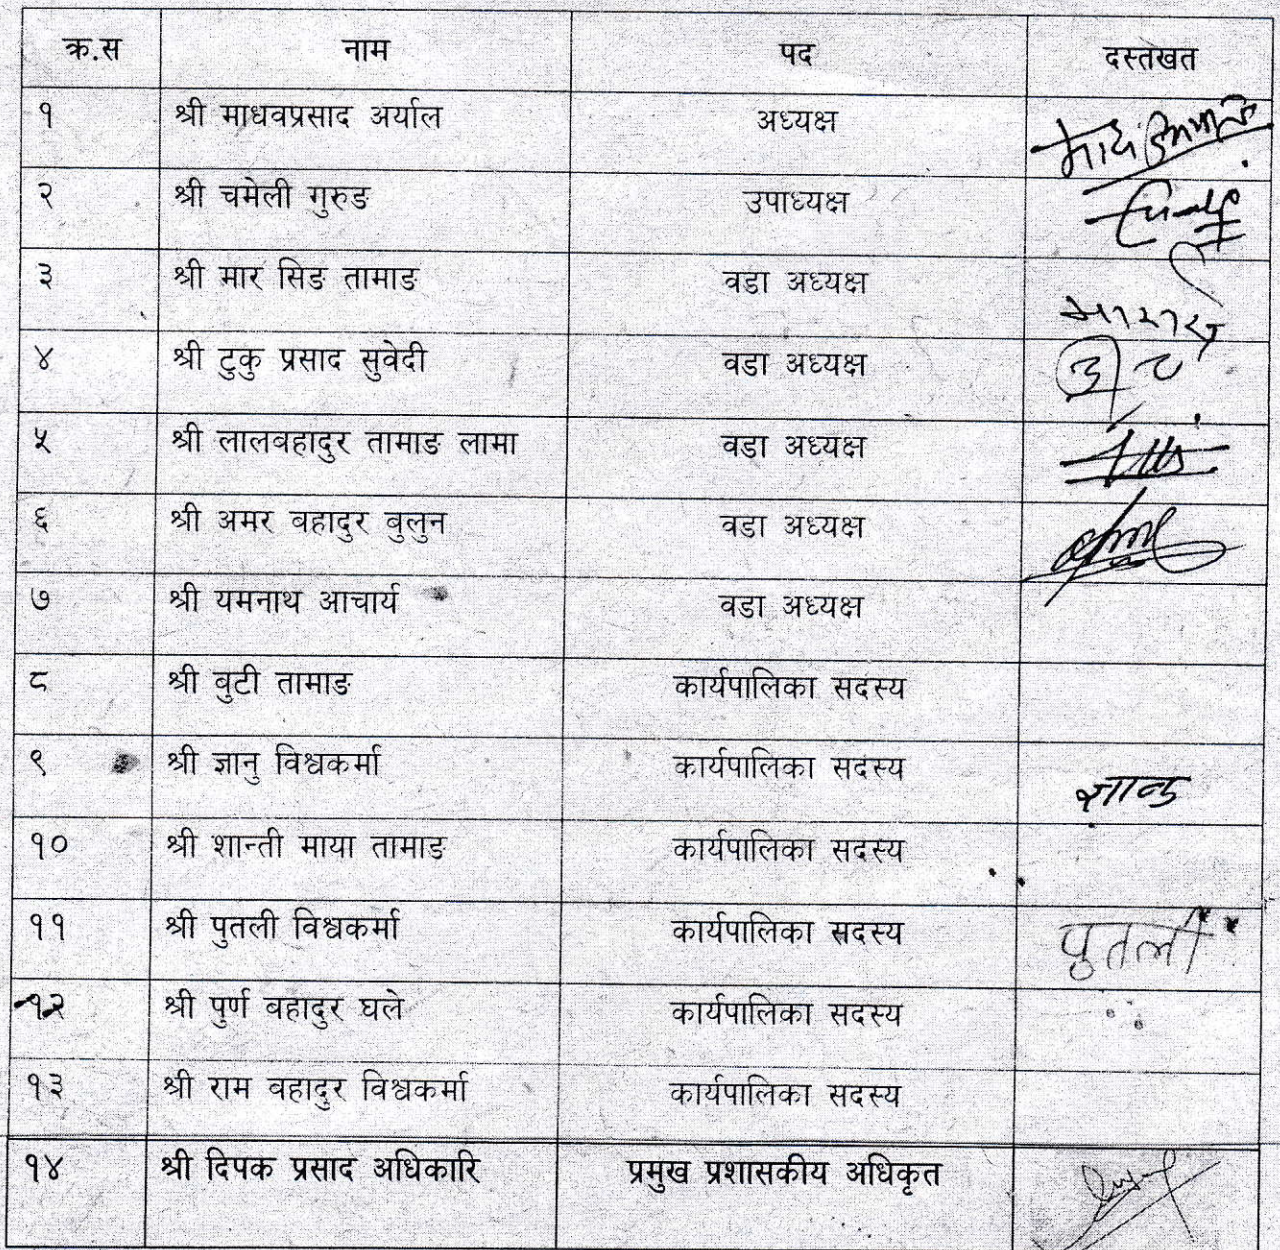 क्र.स नाम पद दस्तखत
१ श्री माधवप्रसाद अर्याल अध्यक्ष
२ श्री चमेली गुरुङ उपाध्यक्ष
३ श्री मार सिङ तामाङ वडा अध्यक्ष
४ श्री टुकु प्रसाद सुवेदी वडा अध्यक्ष
५ श्री लालबहादुर तामाङ लामा वडा अध्यक्ष
६ श्री अमर बहादुर बुलुन वडा अध्यक्ष
७ श्री यमनाथ आचार्य वडा अध्यक्ष
८ श्री बुटी तामाङ कार्यपालिका सदस्य
९ श्री ज्ञानु विश्वकर्मा कार्यपालिका सदस्य
१० श्री शान्ती माया तामाङ कार्यपालिका सदस्य
११ श्री पुतली विश्वकर्मा कार्यपालिका सदस्य पुतली
१२ श्री पुर्ण बहादुर घले कार्यपालिका सदस्य
१३ श्री राम बहादुर विश्वकर्मा कार्यपालिका सदस्य
१४ श्री दिपक प्रसाद अधिकारि प्रमुख प्रशासकीय अधिकृत